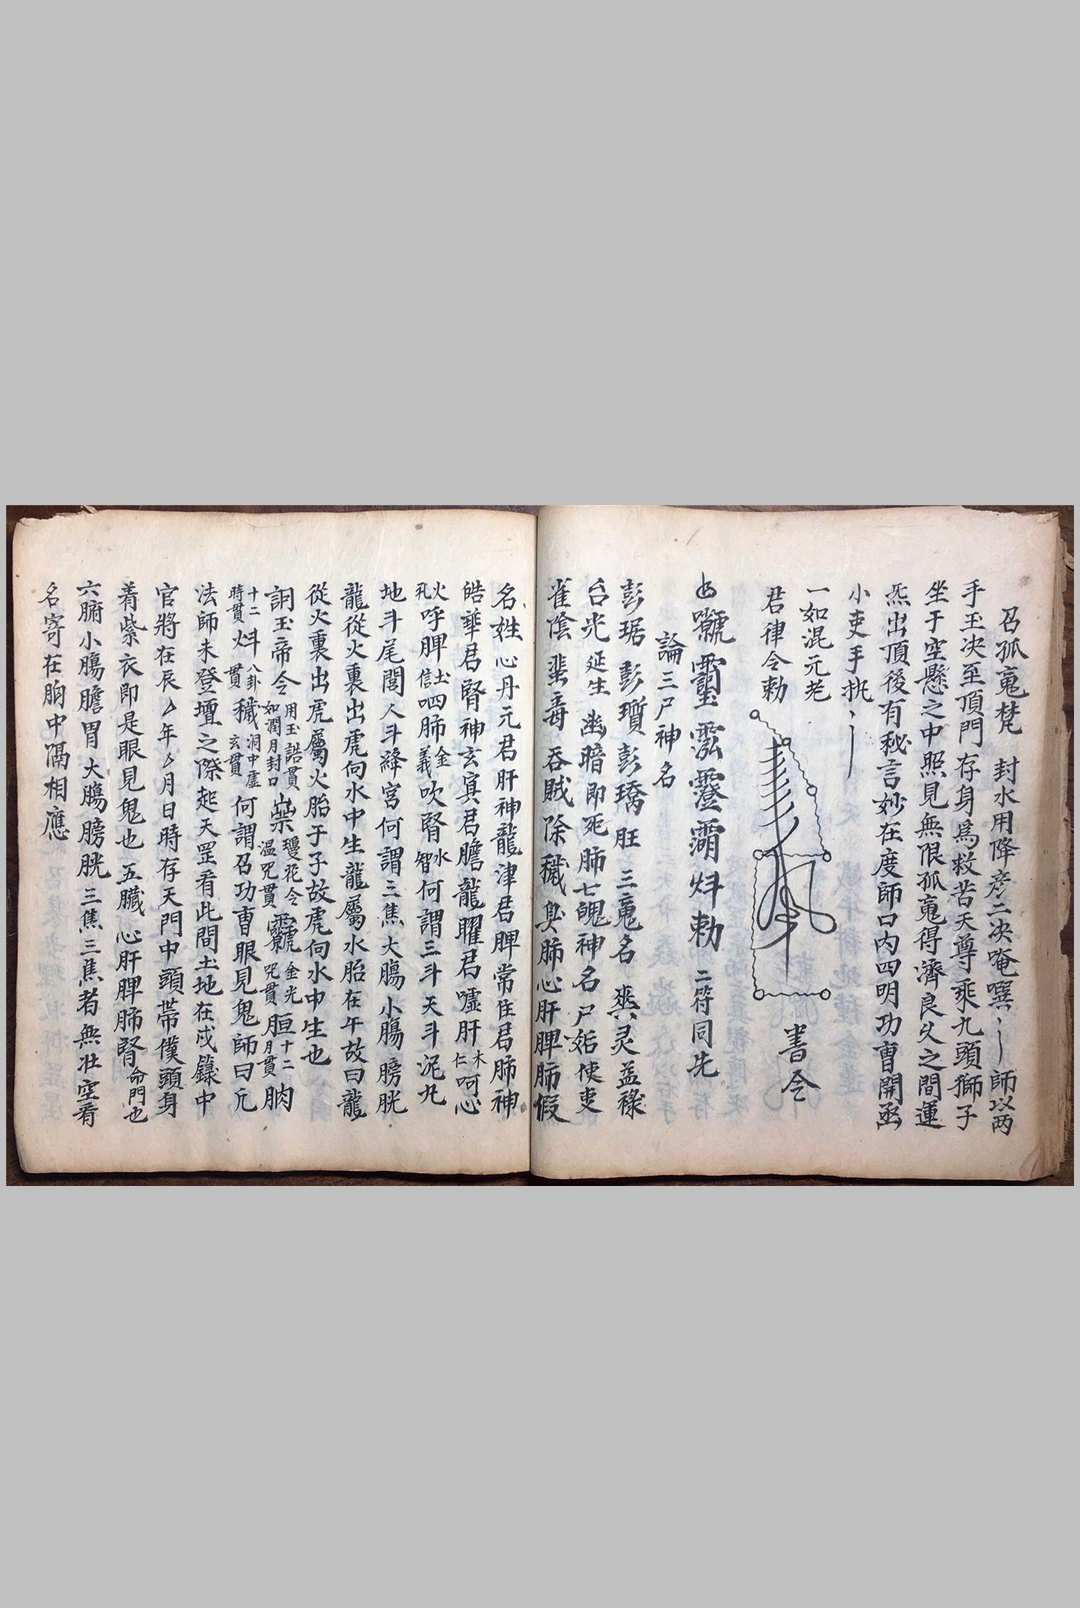 召孤魂梵　封水用降彦二决唵㗲〻〡師以两
手玉决至頂門存身為救苦天尊乘九頭獅子
坐于空懸之中照見無限孤魂得濟良久之間運
炁出頂後有秘言妙在度師口内四明功曹開函
小吏手执〻〡
一如混元老
君律令勅
書令
勅二符同先
論三尸神名
彭琚彭瓆彭璚旺三魂名爽灵益祿
台光延生幽暗即死肺七魄神名尸姤使吏
雀陰蜚毒吞賊除穢臭肺心肝脾肺假
名姓心丹元君肝神龍津君脾常住君肺神
皓華君腎神玄寞君膽龍曜君噓肝木仁呵心
火礼呼脾土信呬肺金義吹腎水智何謂三斗天斗泥丸
地斗尾閭人斗絳宮何謂三焦大腸小腸膀胱
龍從火裏出虎向水中生龍屬水胎在午故曰龍
從火裏出虎屬火胎于子故虎向水中生也
詷玉帝令用玉誥貫如潤月封口瓊花令温咒貫金光咒貫十二月貫
十二時貫八卦貫穢洞中虚玄貫何謂召功曹眼見鬼師曰凢
法師未登壇之際起天罡看此間土地在戌籙中
官將在辰厶年厶月日時存天門中頭帶僕頭身
着紫衣即是眼見鬼也五臟心肝脾肺腎命門也
六腑小腸膽胃大腸膀胱三焦三焦者無壮空有
名寄在胸中隔相應